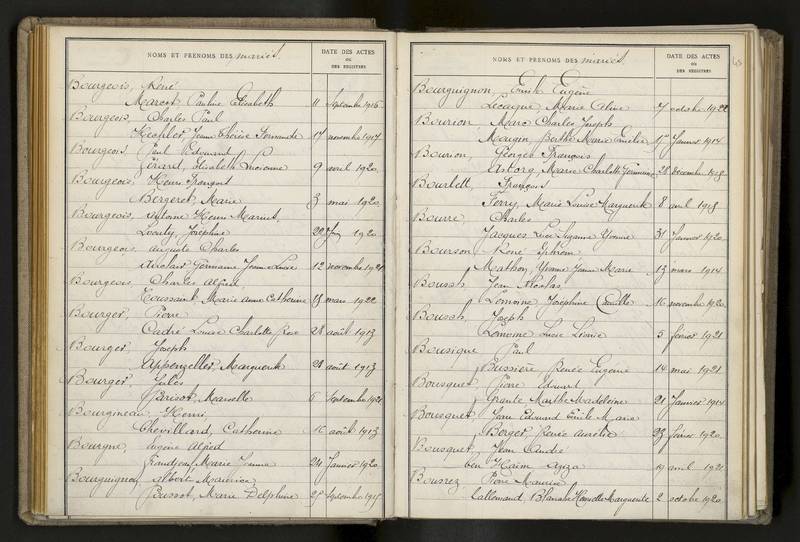 NOMS ET PRÉNOMS DES mariés.
DATE DES ACTES
OU
DES REGISTRES
Bourgeois, René
Marcot, Pauline Elisabeth 11 Septembre 1916
Bourgeois, Charles Paul
Keopler, Jeanne Thérèse Fernande 17 novembre 1917
Bourgeois, Paul Edouard
Gérard, Elisabeth Lucienne 9 avril 1920
Bourgeois, Henri François
Bergeret, Marie 3 mai 1920
Bourgeois, Antoine Henri Marius,
Louty, Joséphine 1920
Bourgeois, Auguste Charles
Germaine Jeanne Lucie 12 novembre 1921
Bourgeois, Charles Alfred
Toussaint, Marie Anne Catherine 18 mars 1922
Bourger, Pierre
Cadré Louise Charlotte Rose 28 août 1913
Bourger, Joseph
Appenzeller, Marguerite 28 août 1913
Bourger, Jules
Brisot, Marcelle 6 Septembre 1921
Bourgineau, Henri,
Chevillard, Catherine 16 août 1913
Bourgne, Eugène Alfred
Marie Jeanne 24 Janvier 1920
Bourguignon, Albert Maurice
Bussot, Marie Delphine 25 Septembre
NOMS ET PRÉNOMS DES mariés.
DATE DES ACTES
OU
DES REGISTRES
Bourguignon, Emile Eugène
Lecaque, Marie Aline 7 octobre 1922
Bourion, Marc Charles Joseph
Mougin, Berthe Marie Emélie 1er Janvier 1914
Bourion, Georges François
Astorg, Marie Charlotte Germaine 28 décembre 1918
Bourlett, François
Ferry, Marie Louise Marguerite 8 avril 1918
Bourré, Charles
Jacques Lucie Suzanne Yvonne 31 Janvier 1920
Bourson René Ephrem
Mathon, Yvonne Jeanne Marie 13 mars 1914
Bousch, Jean Nicolas
Lomoine Joséphine Camille 16 novembre 1920
Bousch, Joseph
Lomoine Lucie 5 février 1921
Bousique, Paul
Bussière Renée Eugénie 14 mai 1921
Bousquet, Pierre Edouard
Grante Marthe Madeleine 21 Janvier 1914
Bousquet, Jean Edouard Emile Marie
Berger, Renée Aurélie 23 février 1920
Bousquet, Jean André
ben Haïm Aziza 19 avril 1921
Bousrez, Pierre Maurice
Lallemand, Blanche Henriette Marguerite 2 octobre 1920